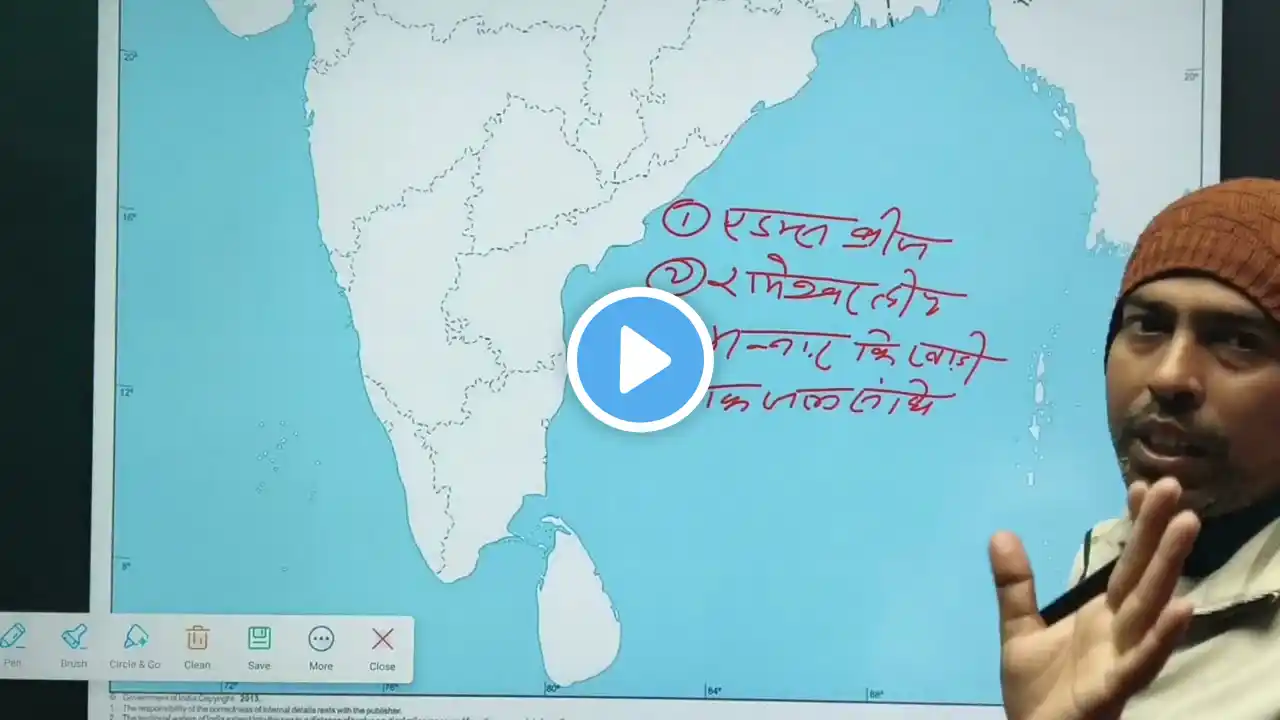 20°
20°
16°
① एडम्स ब्रीज
② रामेश्वरम द्वीप
मन्नार कि खाड़ी
क जल संधि
12°
8°
Pen
Brush
Circle & Go
Clean
Save
More
Close
72°
76°
80°
84°
88°
© Government of India Copyright 2013.
1. The responsibility of the correctness of internal details rests with the publisher.